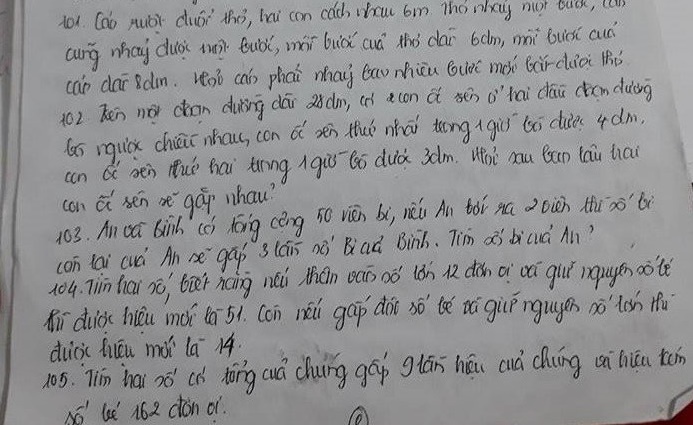 101. Cáo đuổi thỏ, hai con cách nhau 6m. Thỏ nhảy một bước, cáo
cũng nhảy được một bước, mỗi bước của thỏ dài 6dm, mỗi bước của
cáo dài 8dm. Hỏi cáo phải nhảy bao nhiêu bước mới bắt được thỏ.
102. Trên một đoạn đường dài 28dm, có 2 con ốc sên ở hai đầu đoạn đường
bò ngược chiều nhau, con ốc sên thứ nhất trong 1 giờ bò được 4dm,
con ốc sên thứ hai trong 1 giờ bò được 3dm. Hỏi sau bao lâu hai
con ốc sên sẽ gặp nhau?
103. An và Bình có tổng cộng 50 viên bi, nếu An bớt ra 2 viên thì số bi
còn lại của An sẽ gấp 3 lần số Bi của Bình. Tìm số bi của An?
104. Tìm hai số, biết rằng nếu thêm vào số lớn 12 đơn vị và giữ nguyên số bé
thì được hiệu mới là 51. Còn nếu gấp đôi số bé và giữ nguyên số lớn thì
được hiệu mới là 14.
105. Tìm hai số có tổng của chúng gấp 9 lần hiệu của chúng và hiệu kém
số bé 162 đơn vị.